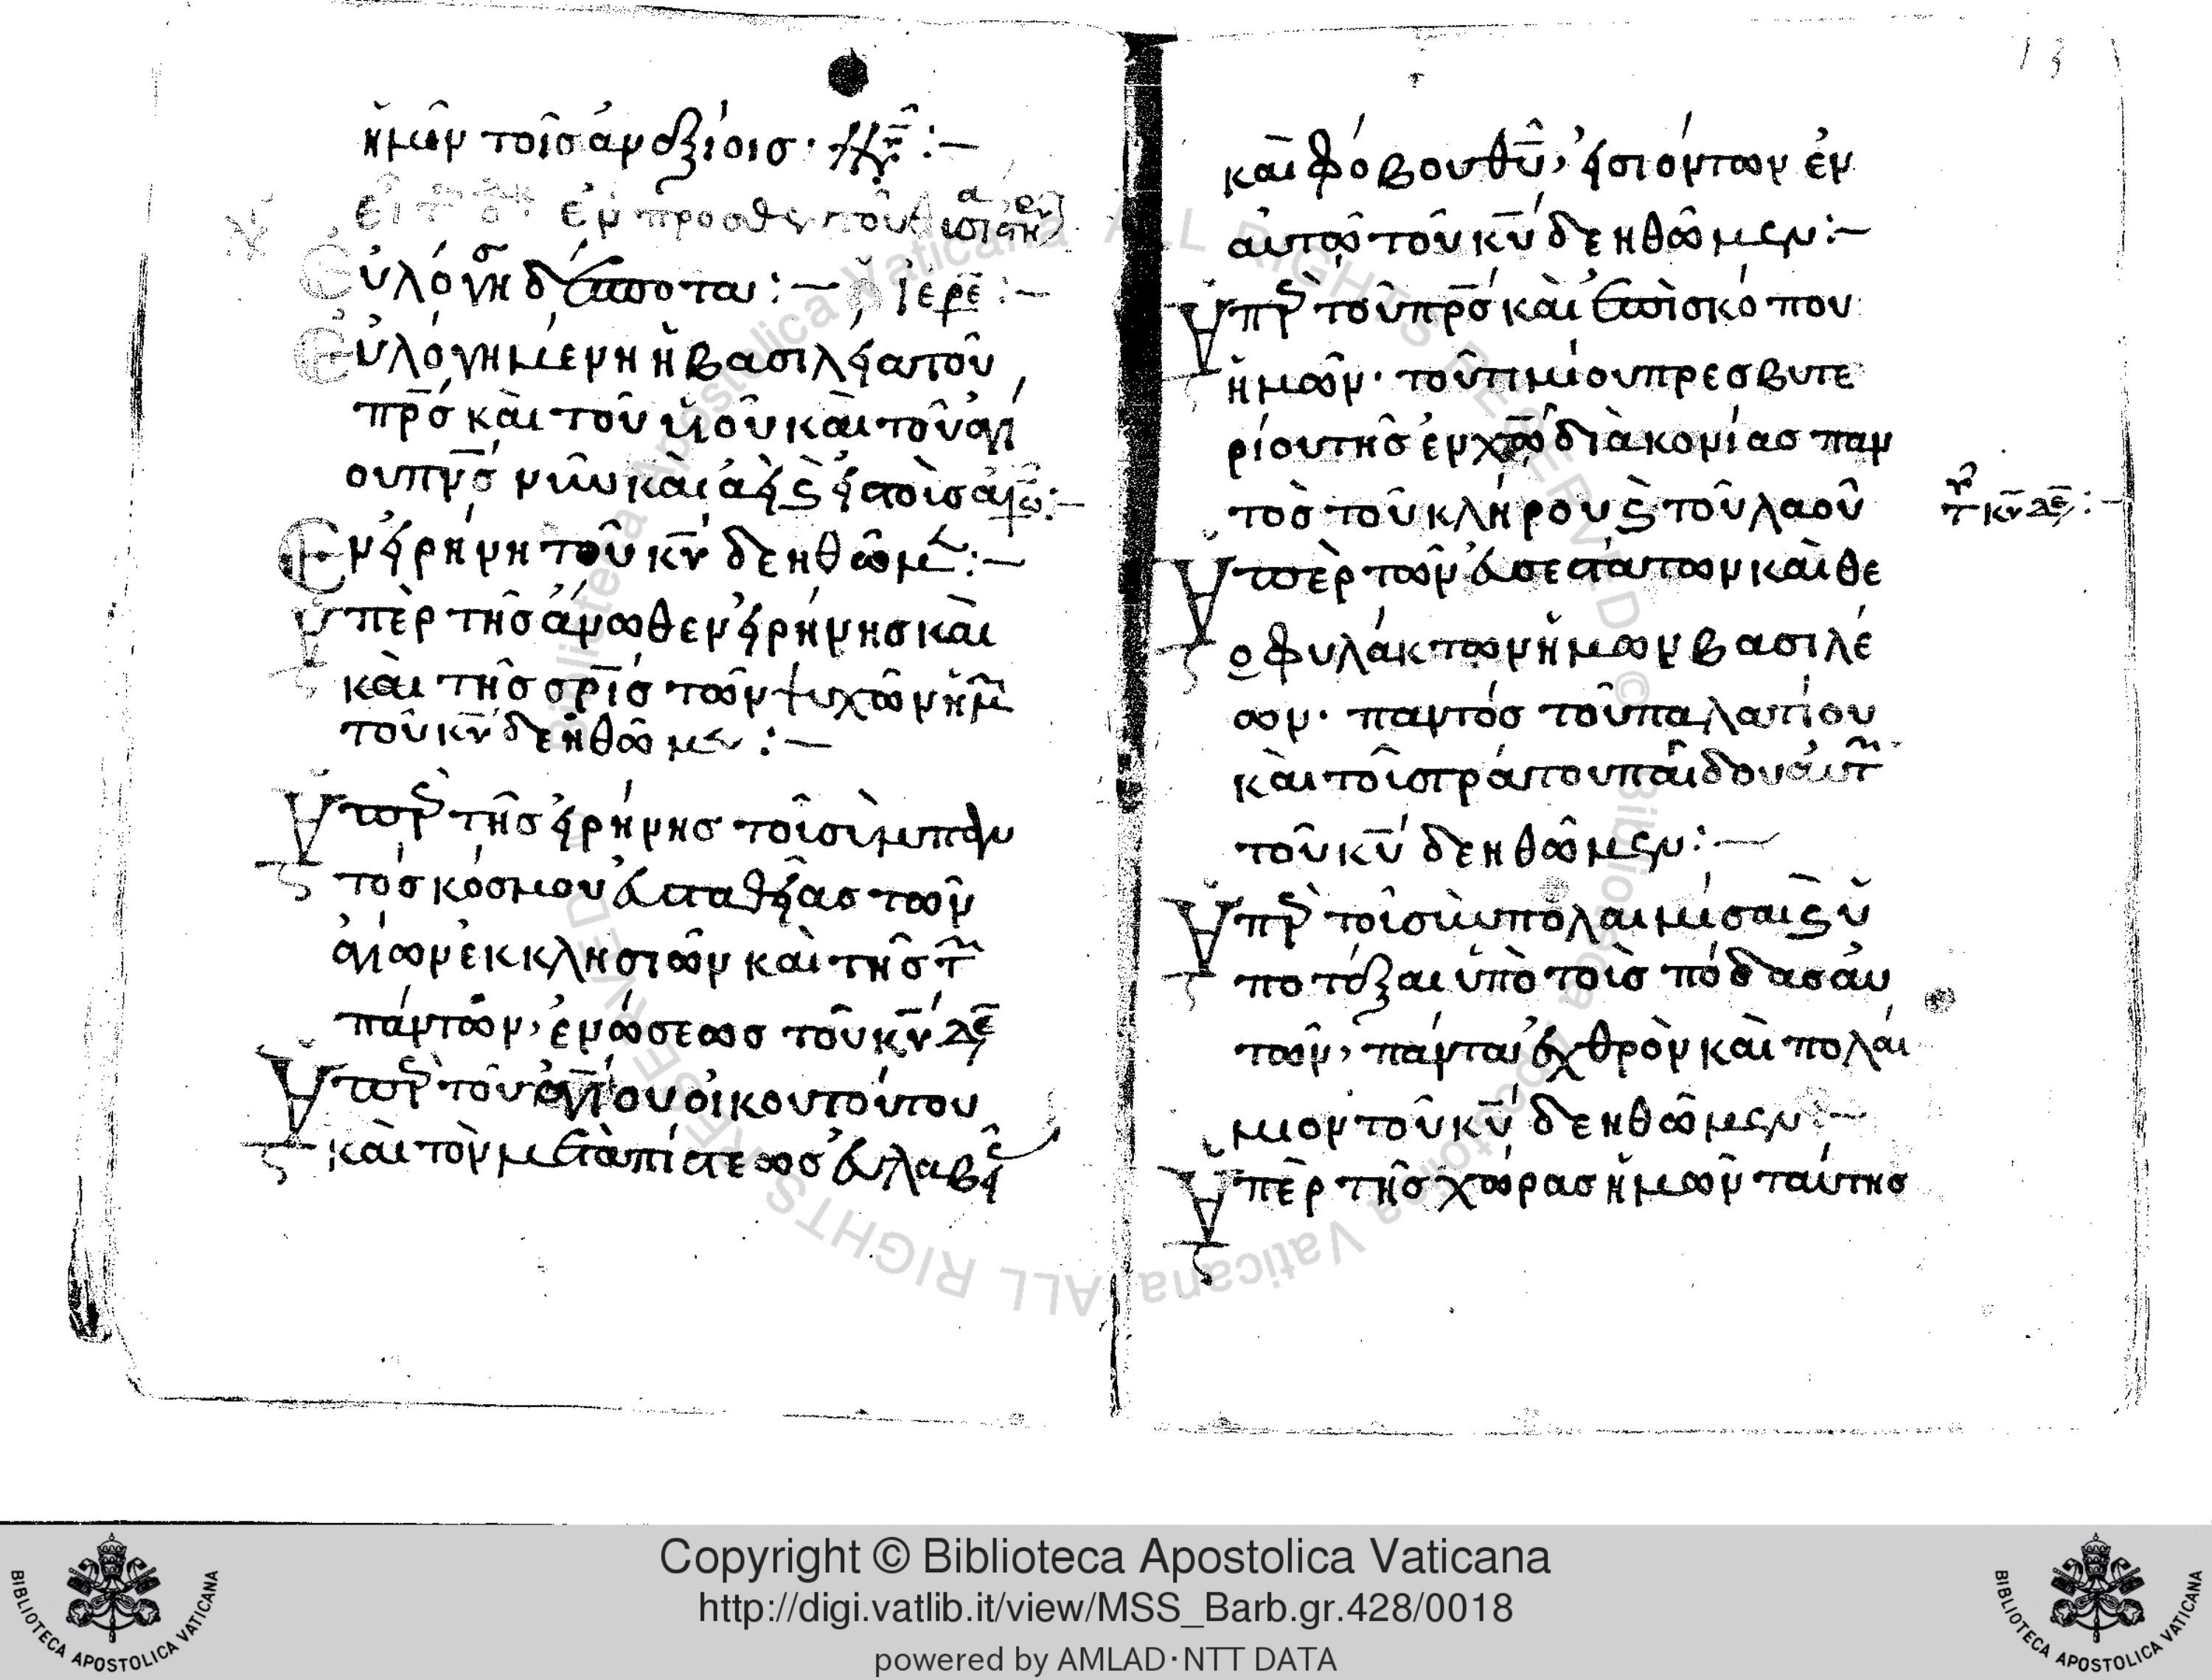 ἡμῶν τοῖσ ἀναξίοισ·
ἐμπροσθεν τοῦ
εὐλόγη δέσποτα :— ἱερε :—
Εὐλόγημένη ἡ βασιλεία τοῦ
πρ̅σ καὶ τοῦ υἱοῦ καὶ τοῦ ἁγί
ου πν̅σ νῦν καὶ ἀεὶ ϛ εἰσ τοὺσ αἰῶ :—
Ἐν εἰρήνη τοῦ κυ̅ δεηθῶμεν :—
Ὑπὲρ τῆσ ἄνωθεν εἰρήνησ καὶ
καὶ τῆσ σρι̅σ τῶν ψυχῶν ἡμῶ
τοῦ κυ̅ δεηθῶμεν :—
Ὑπὲρ τῆσ εἰρήνησ τοῖ σὺμπαν
τόσ κόσμου εὐσταθείασ τῶν
ἁγίων ἐκκλησιῶν καὶ τῆσ τῶν
πάντων, ἑνώσεωσ τοῦ κυ̅ δε
Ὑπὲρ τοῦ ἁγίου οἴκου τούτου
καὶ τὸν μετὰ πίστεωσ εὐλαβεί
13
καὶ φόβου θυ̅, εἰσιόντων ἐν
αὐτῶ τοῦ κυ̅ δεηθῶμεν :—
Ὑπὲρ τοῦ πρ̅σ καὶ ἐπὶσκόπου
ἡμῶν· τοῦ τιμίου πρεσβυτε
ρίου τῆσ ἐν χω̅ διὰκονίασ παν
τὸσ τοῦ κλήρου ϛ τοῦ λαοῦ
τ κυ̅ δε :—
Ὑπὲρ τῶν εὐσεστάτων καὶ θε
οφυλάκτων ἡμων βασιλέ
ων· παντόσ τοῦ παλατίου
καὶ τοῖ στράτου παῖδου αὐτῶν
τοῦ κυ̅ δεηθῶμεν :—
Ὑπὲρ τοῖ σὺμπολαιμίσαι ϛ ὑ
ποτάξαι ὑπὸ τοὶσ πόδασ αὐ
τῶν, πάντα ἐχθρὸν καὶ πολαί
μιον τοῦ κυ̅ δεηθῶμεν :—
Ὑπὲρ τῆσ χώρασ ἡμῶν ταύτησ
Copyright © Biblioteca Apostolica Vaticana
http://digi.vatlib.it/view/MSS_Barb.gr.428/0018
powered by AMLAD·NTT DATA
BIBLIOTECA APOSTOLICA VATICANA
BIBLIOTECA APOSTOLICA VATICANA